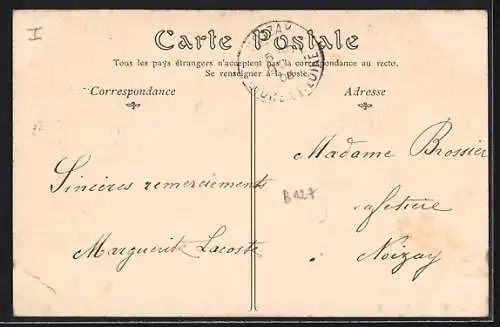 I
Carte Postale
Tous les pays étrangers n'acceptent pas la correspondance au recto.
Se renseigner à la poste.
Correspondance
Sincères remerciements
Marguerite Lacoste
Adresse
Madame Brossier
B127
cafetière
Noizay